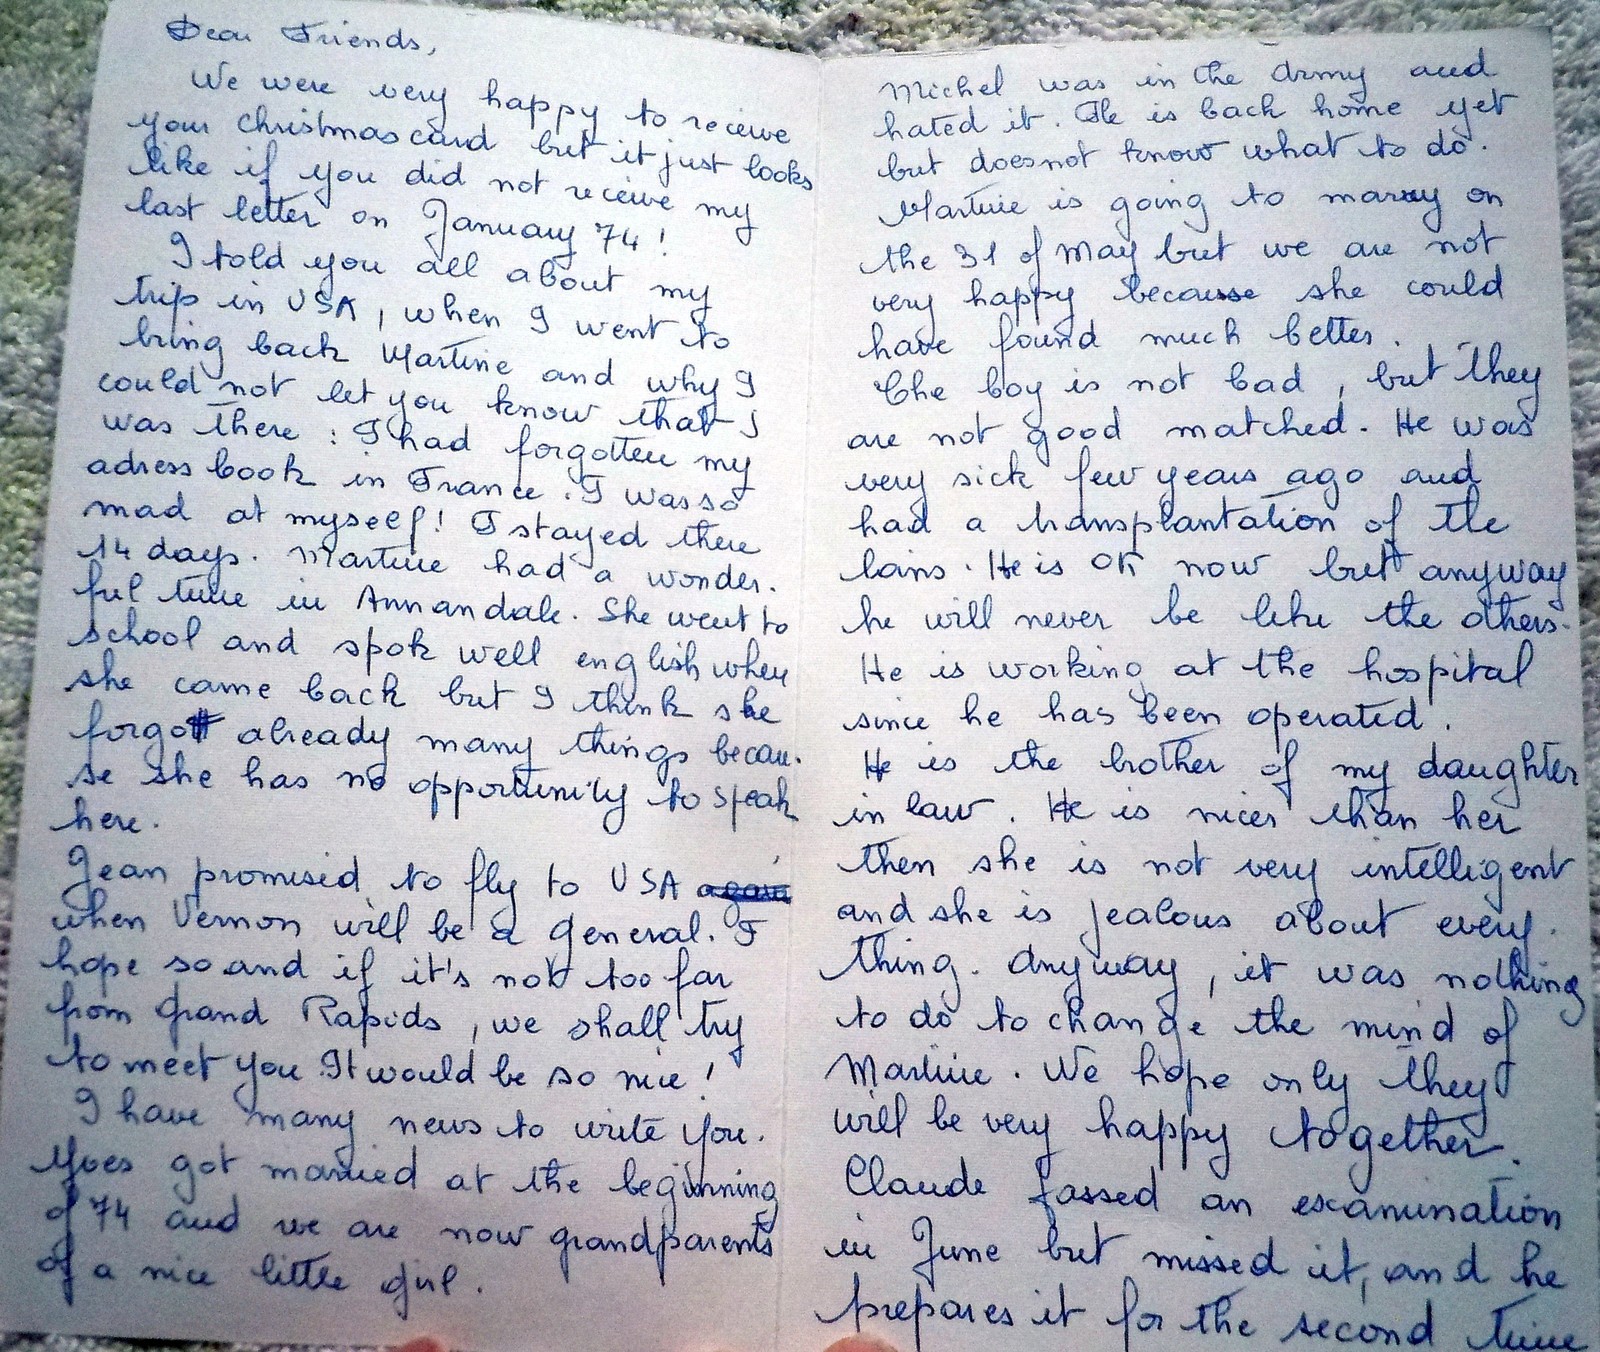 Dear Friends,
We were very happy to receive
your christmas card but it just looks
like if you did not receive my
last letter on January 74!
I told you all about my
trip in USA, when I went to
bring back Martine and why I
could not let you know that I
was there: I had forgotten my
adress book in France. I was so
mad at myself! I stayed there
14 days. Martine had a wonder.
ful time in Annandale. She went to
school and spok well english when
she came back but I think she
forgot already many things becau.
se she has no opportunity to speak
here.
Jean promised to fly to USA
when Vernon will be a General. I
hope so and if it's not too far
from Grand Rapids, we shall try
to meet you It would be so nice!
I have many news to write you.
Yves got married at the beginning
of 74 and we are now grandparents
of a nice little girl.
Michel was in the Army and
hated it. He is back home yet
but does not know what to do.
Martine is going to marry on
the 31 of May but we are not
very happy because she could
have found much better.
The boy is not bad, but they
are not good matched. He was
very sick few years ago and
had a transplantation of the
. He is OK now but anyway
he will never be like the others.
He is working at the hospital
since he has been operated.
He is the brother of my daughter
in law. He is nicer than her
then she is not very intelligent
and she is jealous about every.
thing. Anyway, it was nothing
to do to change the mind of
Martine. We hope only they
will be very happy together.
Claude passed an examination
in June but missed it, and he
prepares it for the second time